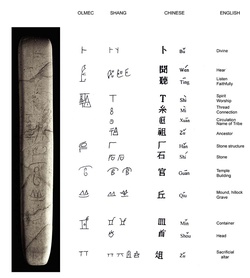 OLMEC SHANG CHINESE ENGLISH
卜 Bu Divine
聞 Wen Hear
聽 Ting Listen Faithfully
Shi Spirit Worship
糸 Mi Thread Connection
Xuan Circulation Name of Tribe
祖 Zu Ancestor
厂 Han Stone structure
石 Shi Stone
宮 Temple Building
丘 Qiu Mound, hillock Grave
皿 Min Container
首 Shou Head
俎 Zu Sacrificial altar